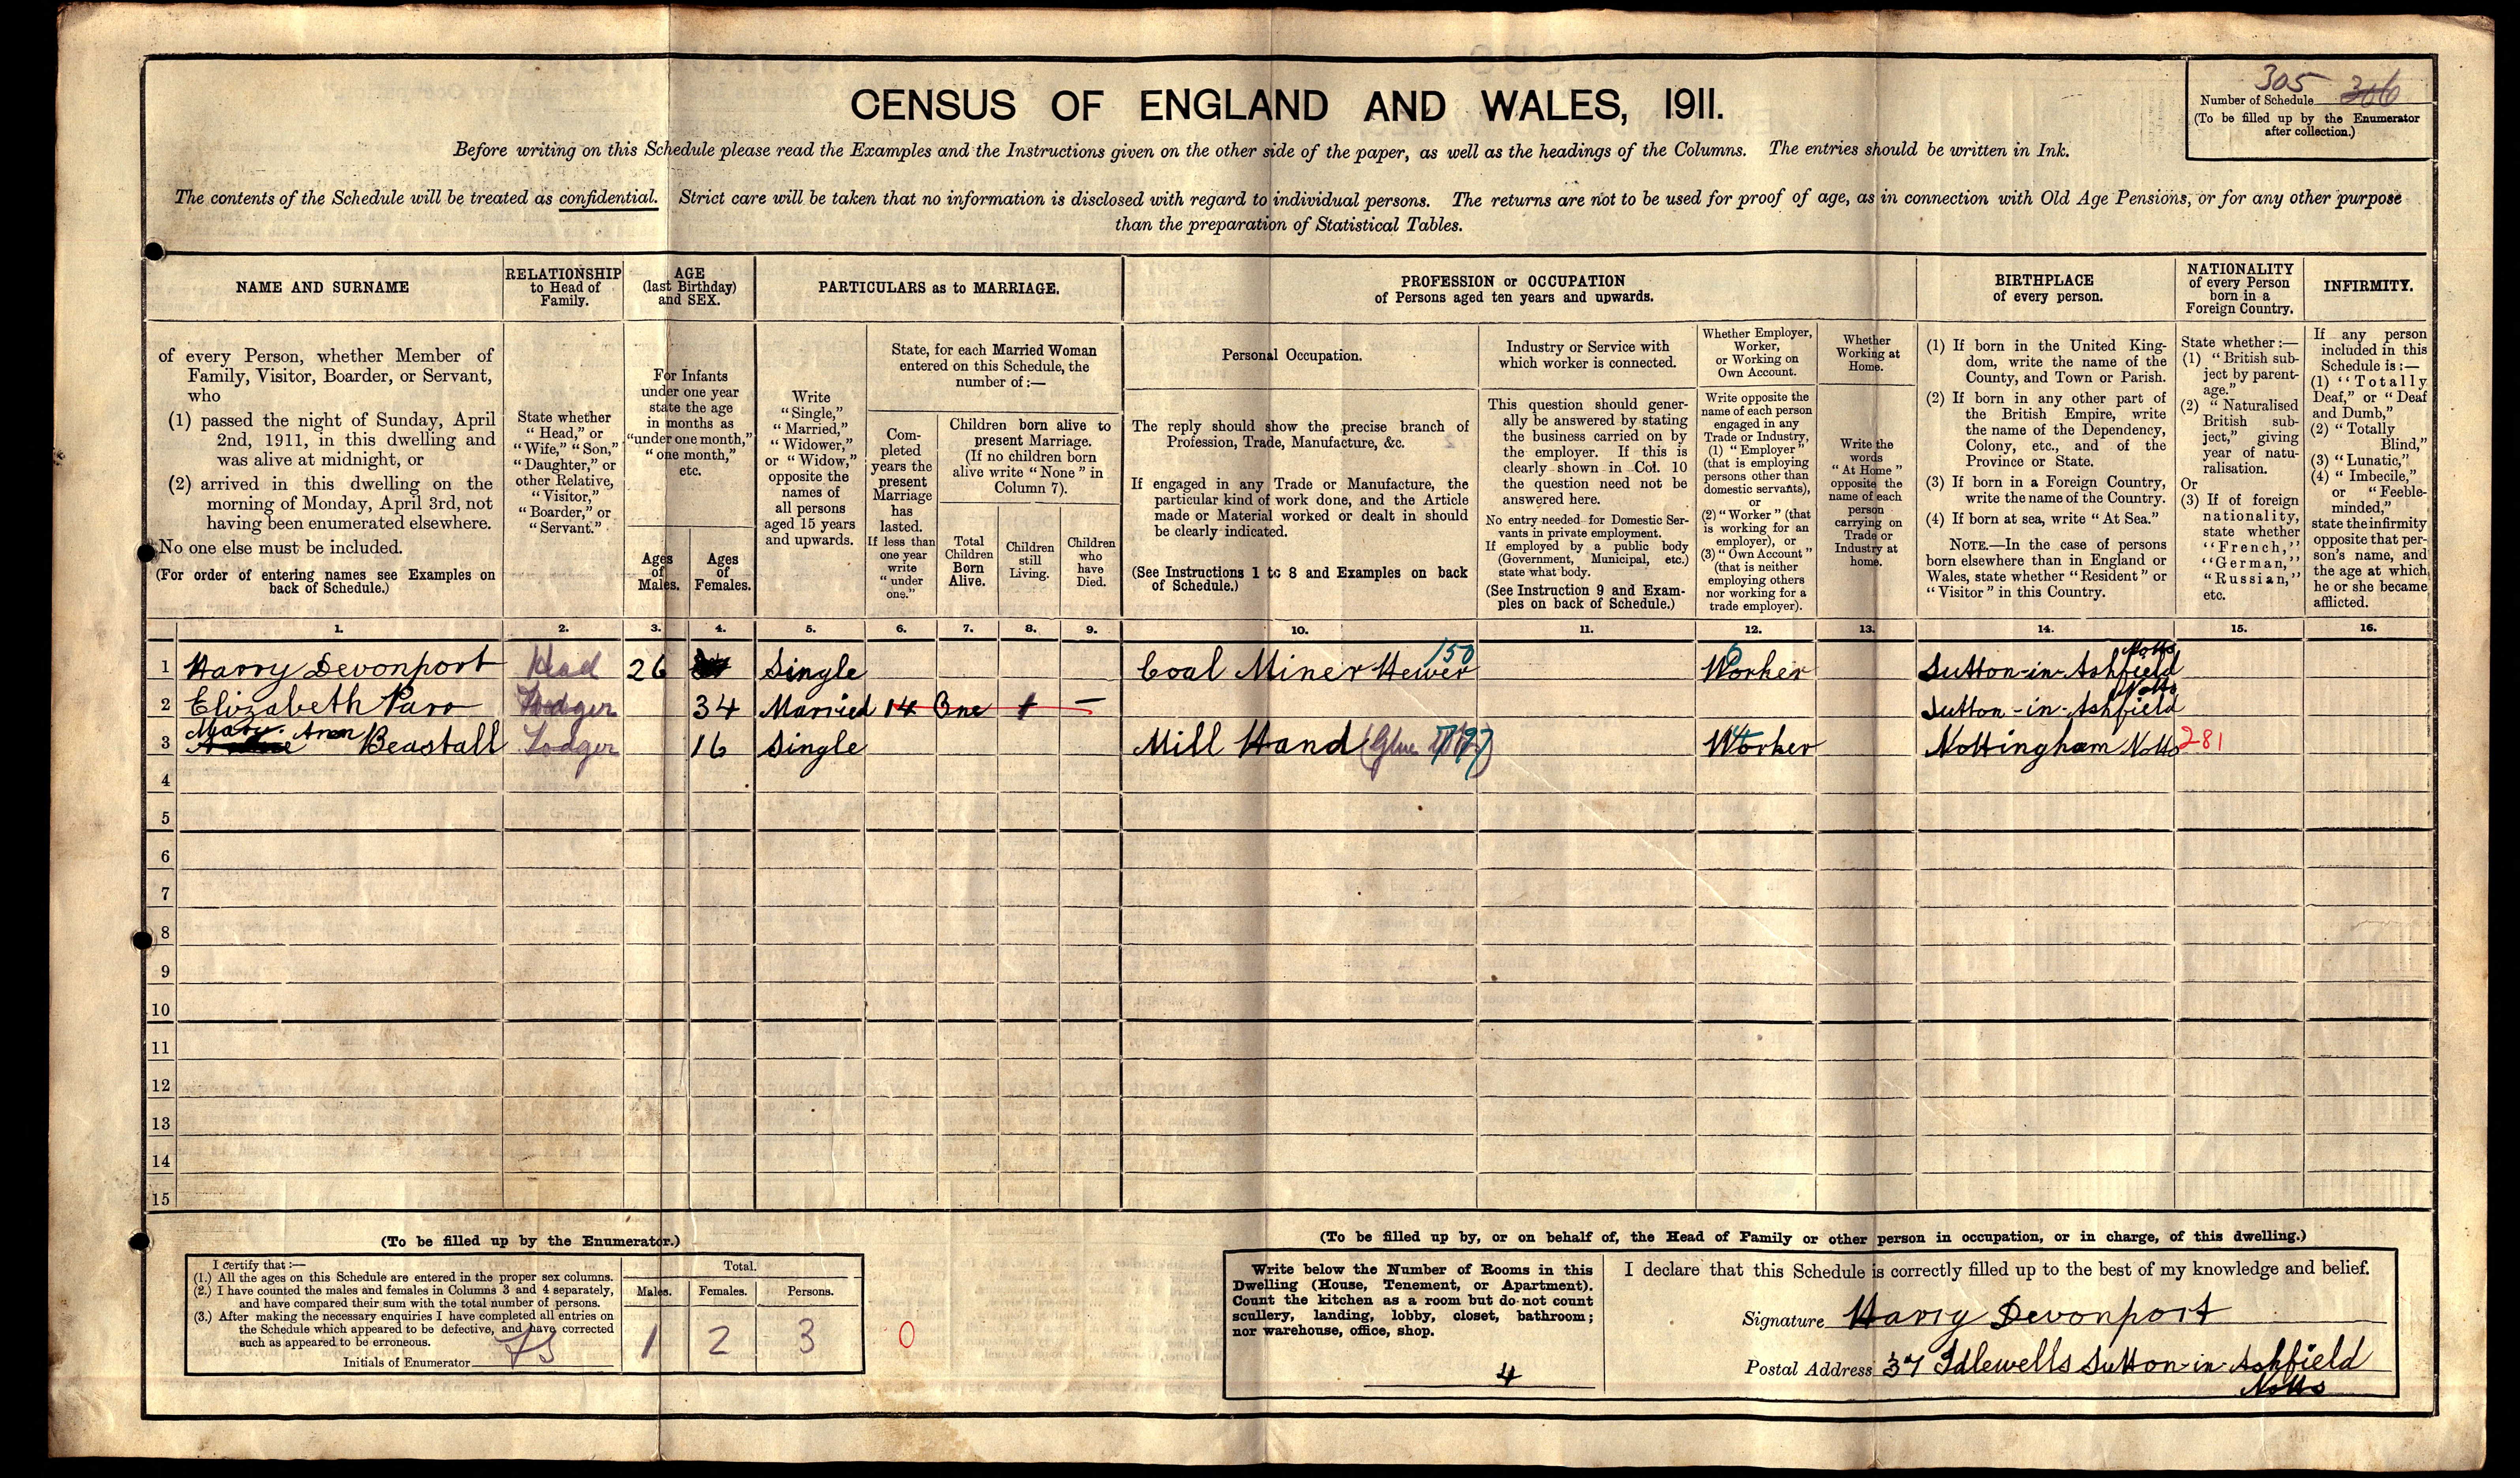 305
Number of Schedule 306
(To be filled up by the Enumerator
after collection.)
CENSUS OF ENGLAND AND WALES, 1911.
Before writing on this Schedule please read the Examples and the Instructions given on the other side of the paper, as well as the headings of the Columns. The entries should be written in Ink.
The contents of the Schedule will be treated as confidential. Strict care will be taken that no information is disclosed with regard to individual persons. The returns are not to be used for proof of age, as in connection with Old Age Pensions, or for any other purpose
than the preparation of Statistical Tables.
NAME AND SURNAME
of every Person, whether Member of
Family, Visitor, Boarder, or Servant,
who
(1) passed the night of Sunday, April
2nd, 1911, in this dwelling and
was alive at midnight, or
(2) arrived in this dwelling on the
morning of Monday, April 3rd, not
having been enumerated elsewhere.
No one else must be included.
(For order of entering names see Examples on
back of Schedule.)
RELATIONSHIP
to Head of
Family.
State whether
"Head," or
"Wife," "Son,"
"Daughter," or
other Relative,
"Visitor,"
"Boarder," or
"Servant."
AGE
(last Birthday)
and SEX.
For Infants
under one year
state the age
in months as
"under one month,"
"one month,"
etc.
Ages
of
Males.
Ages
of
Females.
PARTICULARS as to MARRIAGE.
Write
"Single,"
"Married,"
"Widower,"
or "Widow,"
opposite the
names of
all persons
aged 15 years
and upwards.
State, for each Married Woman
entered on this Schedule, the
number of:—
Com-
pleted
years the
present
Marriage
has
lasted.
If less than
one year
write
"under
one."
Children born alive to
present Marriage.
(If no children born
alive write "None" in
Column 7).
Total
Children
Born
Alive.
Children
still
Living.
Children
who
have
Died.
PROFESSION or OCCUPATION
of Persons aged ten years and upwards.
Personal Occupation.
The reply should show the precise branch of
Profession, Trade, Manufacture, &c.
If engaged in any Trade or Manufacture, the
particular kind of work done, and the Article
made or Material worked or dealt in should
be clearly indicated.
(See Instructions 1 to 8 and Examples on back
of Schedule.)
Industry or Service with
which worker is connected.
This question should gener-
ally be answered by stating
the business carried on by
the employer. If this is
clearly shown in Col. 10
the question need not be
answered here.
No entry needed for Domestic Ser-
vants in private employment.
If employed by a public body
(Government, Municipal, etc.)
state what body.
(See Instruction 9 and Exam-
ples on back of Schedule.)
Whether Employer,
Worker,
or Working on
Own Account.
Write opposite the
name of each person
engaged in any
Trade or Industry,
(1) "Employer"
(that is employing
persons other than
domestic servants),
or
(2) "Worker" (that
is working for an
employer), or
(3) "Own Account"
(that is neither
employing others
nor working for a
trade employer).
Whether
Working at
Home.
Write the
words
"At Home"
opposite the
name of each
person
carrying on
Trade or
Industry at
home.
BIRTHPLACE
of every person.
(1) If born in the United King-
dom, write the name of the
County, and Town or Parish.
(2) If born in any other part of
the British Empire, write
the name of the Dependency,
Colony, etc., and of the
Province or State.
(3) If born in a Foreign Country,
write the name of the Country.
(4) If born at sea, write "At Sea."
NOTE.—In the case of persons
born elsewhere than in England or
Wales, state whether "Resident" or
"Visitor" in this Country.
NATIONALITY
of every Person
born in a
Foreign Country.
State whether:—
(1) "British sub-
ject by parent-
age."
(2) "Naturalised
British sub-
ject," giving
year of natu-
ralisation.
Or
(3) If of foreign
nationality,
state whether
"French,"
"German,"
"Russian,"
etc.
INFIRMITY.
If any person
included in this
Schedule is:—
(1) "Totally
Deaf," or "Deaf
and Dumb,"
(2) "Totally
Blind,"
(3) "Lunatic,"
(4) "Imbecile,"
or "Feeble-
minded,"
state the infirmity
opposite that per-
son's name, and
the age at which
he or she became
afflicted.
1. 2. 3. 4. 5. 6. 7. 8. 9. 10. 11. 12. 13. 14. 15. 16.
1 Harry Devonport Head 26 Single Coal Miner Hewer 150 Worker Sutton-in-Ashfield Notts
2 Elizabeth Lodger 34 Married 14 One 1 — Sutton-in-Ashfield Notts
3 Mary Ann Beastall Lodger 16 Single Mill Hand Worker Nottingham Notts 281
4
5
6
7
8
9
10
11
12
13
14
15
(To be filled up by the Enumerator.)
I certify that:—
(1.) All the ages on this Schedule are entered in the proper sex columns.
(2.) I have counted the males and females in Columns 3 and 4 separately,
and have compared their sum with the total number of persons.
(3.) After making the necessary enquiries I have completed all entries on
the Schedule which appeared to be defective, and have corrected
such as appeared to be erroneous.
Initials of Enumerator
Total.
Males. Females. Persons.
1 2 3 0
(To be filled up by, or on behalf of, the Head of Family or other person in occupation, or in charge, of this dwelling.)
Write below the Number of Rooms in this
Dwelling (House, Tenement, or Apartment).
Count the kitchen as a room but do not count
scullery, landing, lobby, closet, bathroom;
nor warehouse, office, shop.
4
I declare that this Schedule is correctly filled up to the best of my knowledge and belief.
Signature Harry Devonport
Postal Address 37 Idlewells Sutton-in-Ashfield
Notts